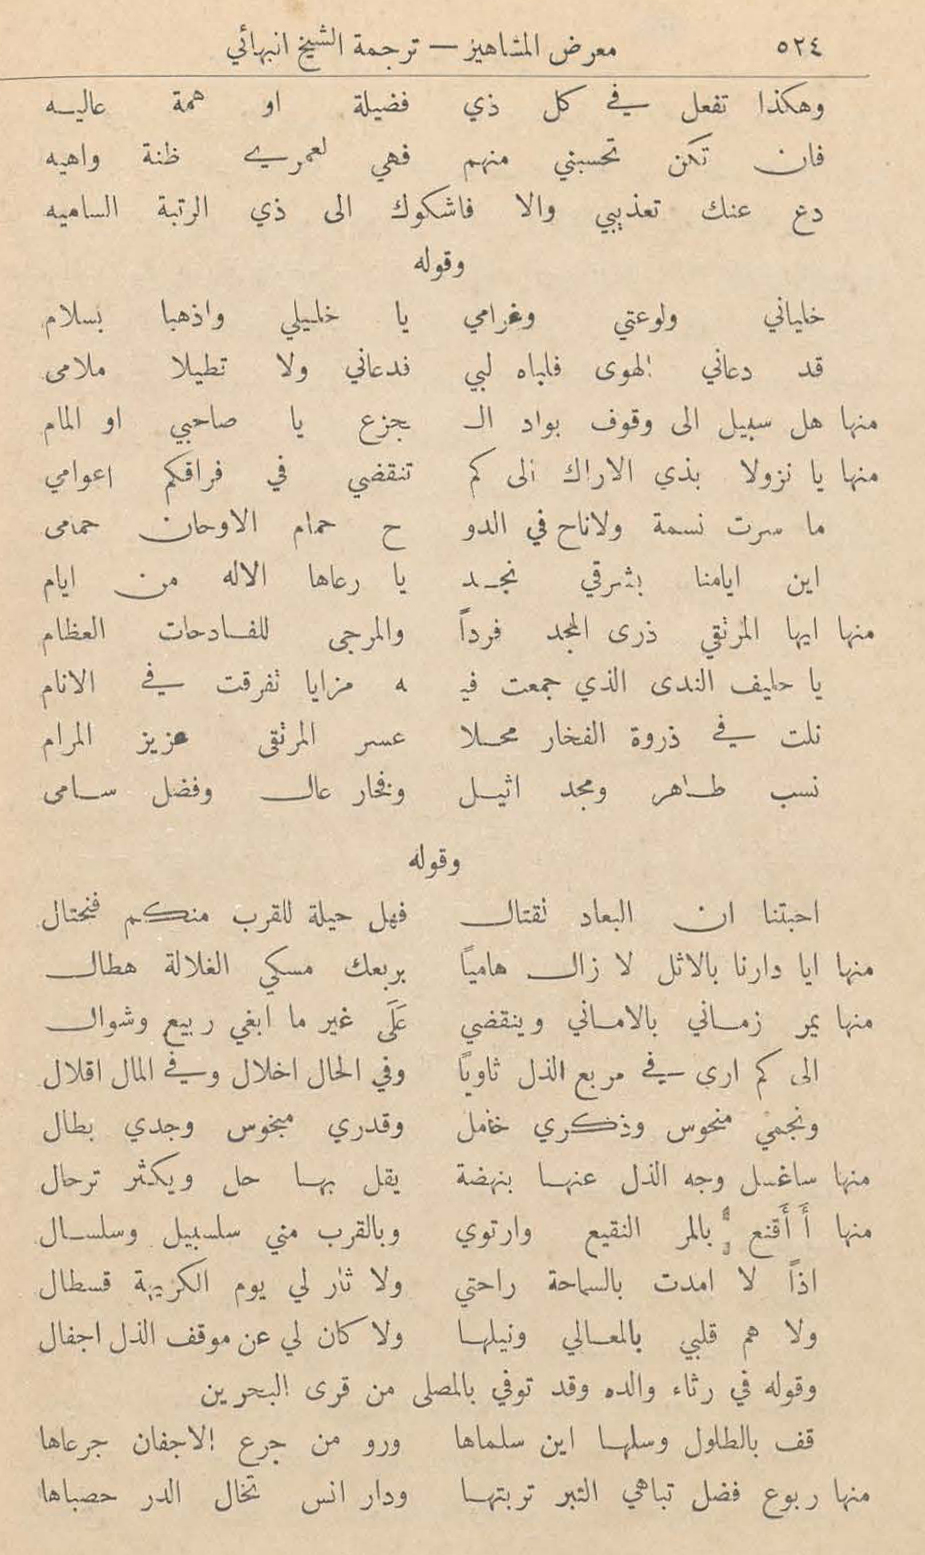 ٥٢٤ معرض المشاهيز — ترجمة الشيخ انبهائي
وهكذا تفعل في كل ذي فضيلة او همة عاليه
فان تكن تحسبني منهم فهي لعمري ظنة واهيه
دع عنك تعذيبي والا فاشكوك الى ذي الرتبة الساميه
وقوله
خلياني ولوعتي وغرامي يا خليلي واذهبا بسلام
قد دعاني الهوى فلباه لبي فدعاني ولا تطيلا ملامى
منها هل سبيل الى وقوف بواد الـ جزع يا صاحبي او المام
منها يا نزولا بذي الاراك الى كم تنقضي في فراقكم اعوامي
ما سرت نسمة ولاناح في الدو ح حمام الاوحان حمامى
اين ايامنا بشرقي نجد يا رعاها الاله من ايام
منها ايها المرتقي ذرى المجد فرداً والمرجى للفادحات العظام
يا حليف الندى الذي جمعت فيـ ـه مزايا تفرقت في الانام
نلت في ذروة الفخار محلا عسر المرتقى عزيز المرام
نسب طاهر ومجد اثيل وفخار عال وفضل سامى
وقوله
احبتنا ان البعاد لقتال فهل حيلة للقرب منكم فنحتال
منها ايا دارنا بالاثل لا زال هامياً بربعك مسكي الغلالة هطال
منها يمر زماني بالاماني وينقضي عَلَى غير ما ابغي ربيع وشوال
الى كم ارى في مربع الذل ثاوياً وفي الحال اخلال وفي المال اقلال
ونجمي منحوس وذكري خامل وقدري مبخوس وجدي بطال
منها ساغسل وجه الذل عنها بنهضة يقل بها حل ويكثر ترحال
منها أَ أَقنع بالمر النقيع وارتوي وبالقرب مني سلسبيل وسلسال
اذاً لا امدت بالسماحة راحتي ولا ثار لي يوم الكريهة قسطال
ولا هم قلبي بالمعالي ونيلها ولا كان لي عن موقف الذل اجفال
وقوله في رثاء والده وقد توفي بالمصلى من قرى البحرين
قف بالطلول وسلها اين سلماها ورو من جرع الاجفان جرعاها
منها ربوع فضل تباهي التبر تربتها ودار انس تخال الدر حصباها